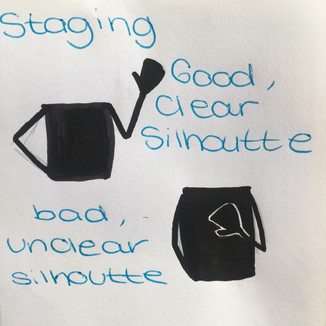 Staging
Good,
Clear
Silhoutte
bad,
unclear
silhoutte